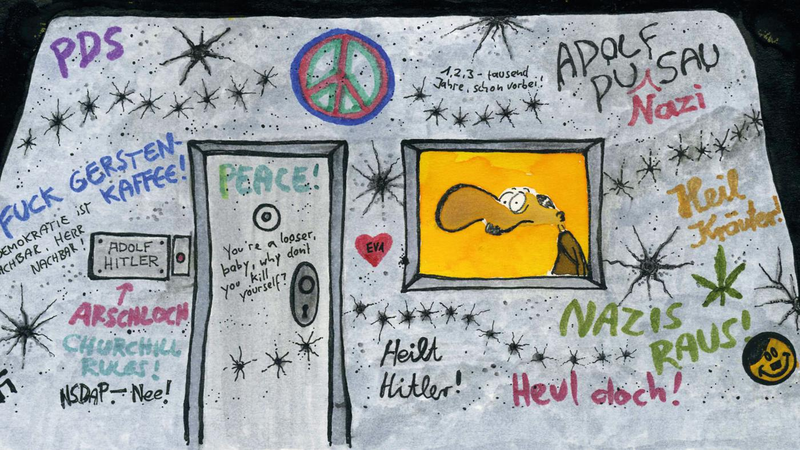 PDS
1,2,3 - tausend
Jahre, schon vorbei!
ADOLF
DU SAU
Nazi
FUCK GERSTEN-
KAFFEE!
DEMOKRATIE IST
MACHBAR, HERR
NACHBAR!
ADOLF
HITLER
ARSCHLOCH
CHURCHILL
RULES!
NSDAP - Nee!
PEACE!
You're a looser,
baby, why don't
you kill
yourself?
EVA
Heil
Kräuter!
NAZIS
RAUS!
Heilt
Hitler!
Heul doch!